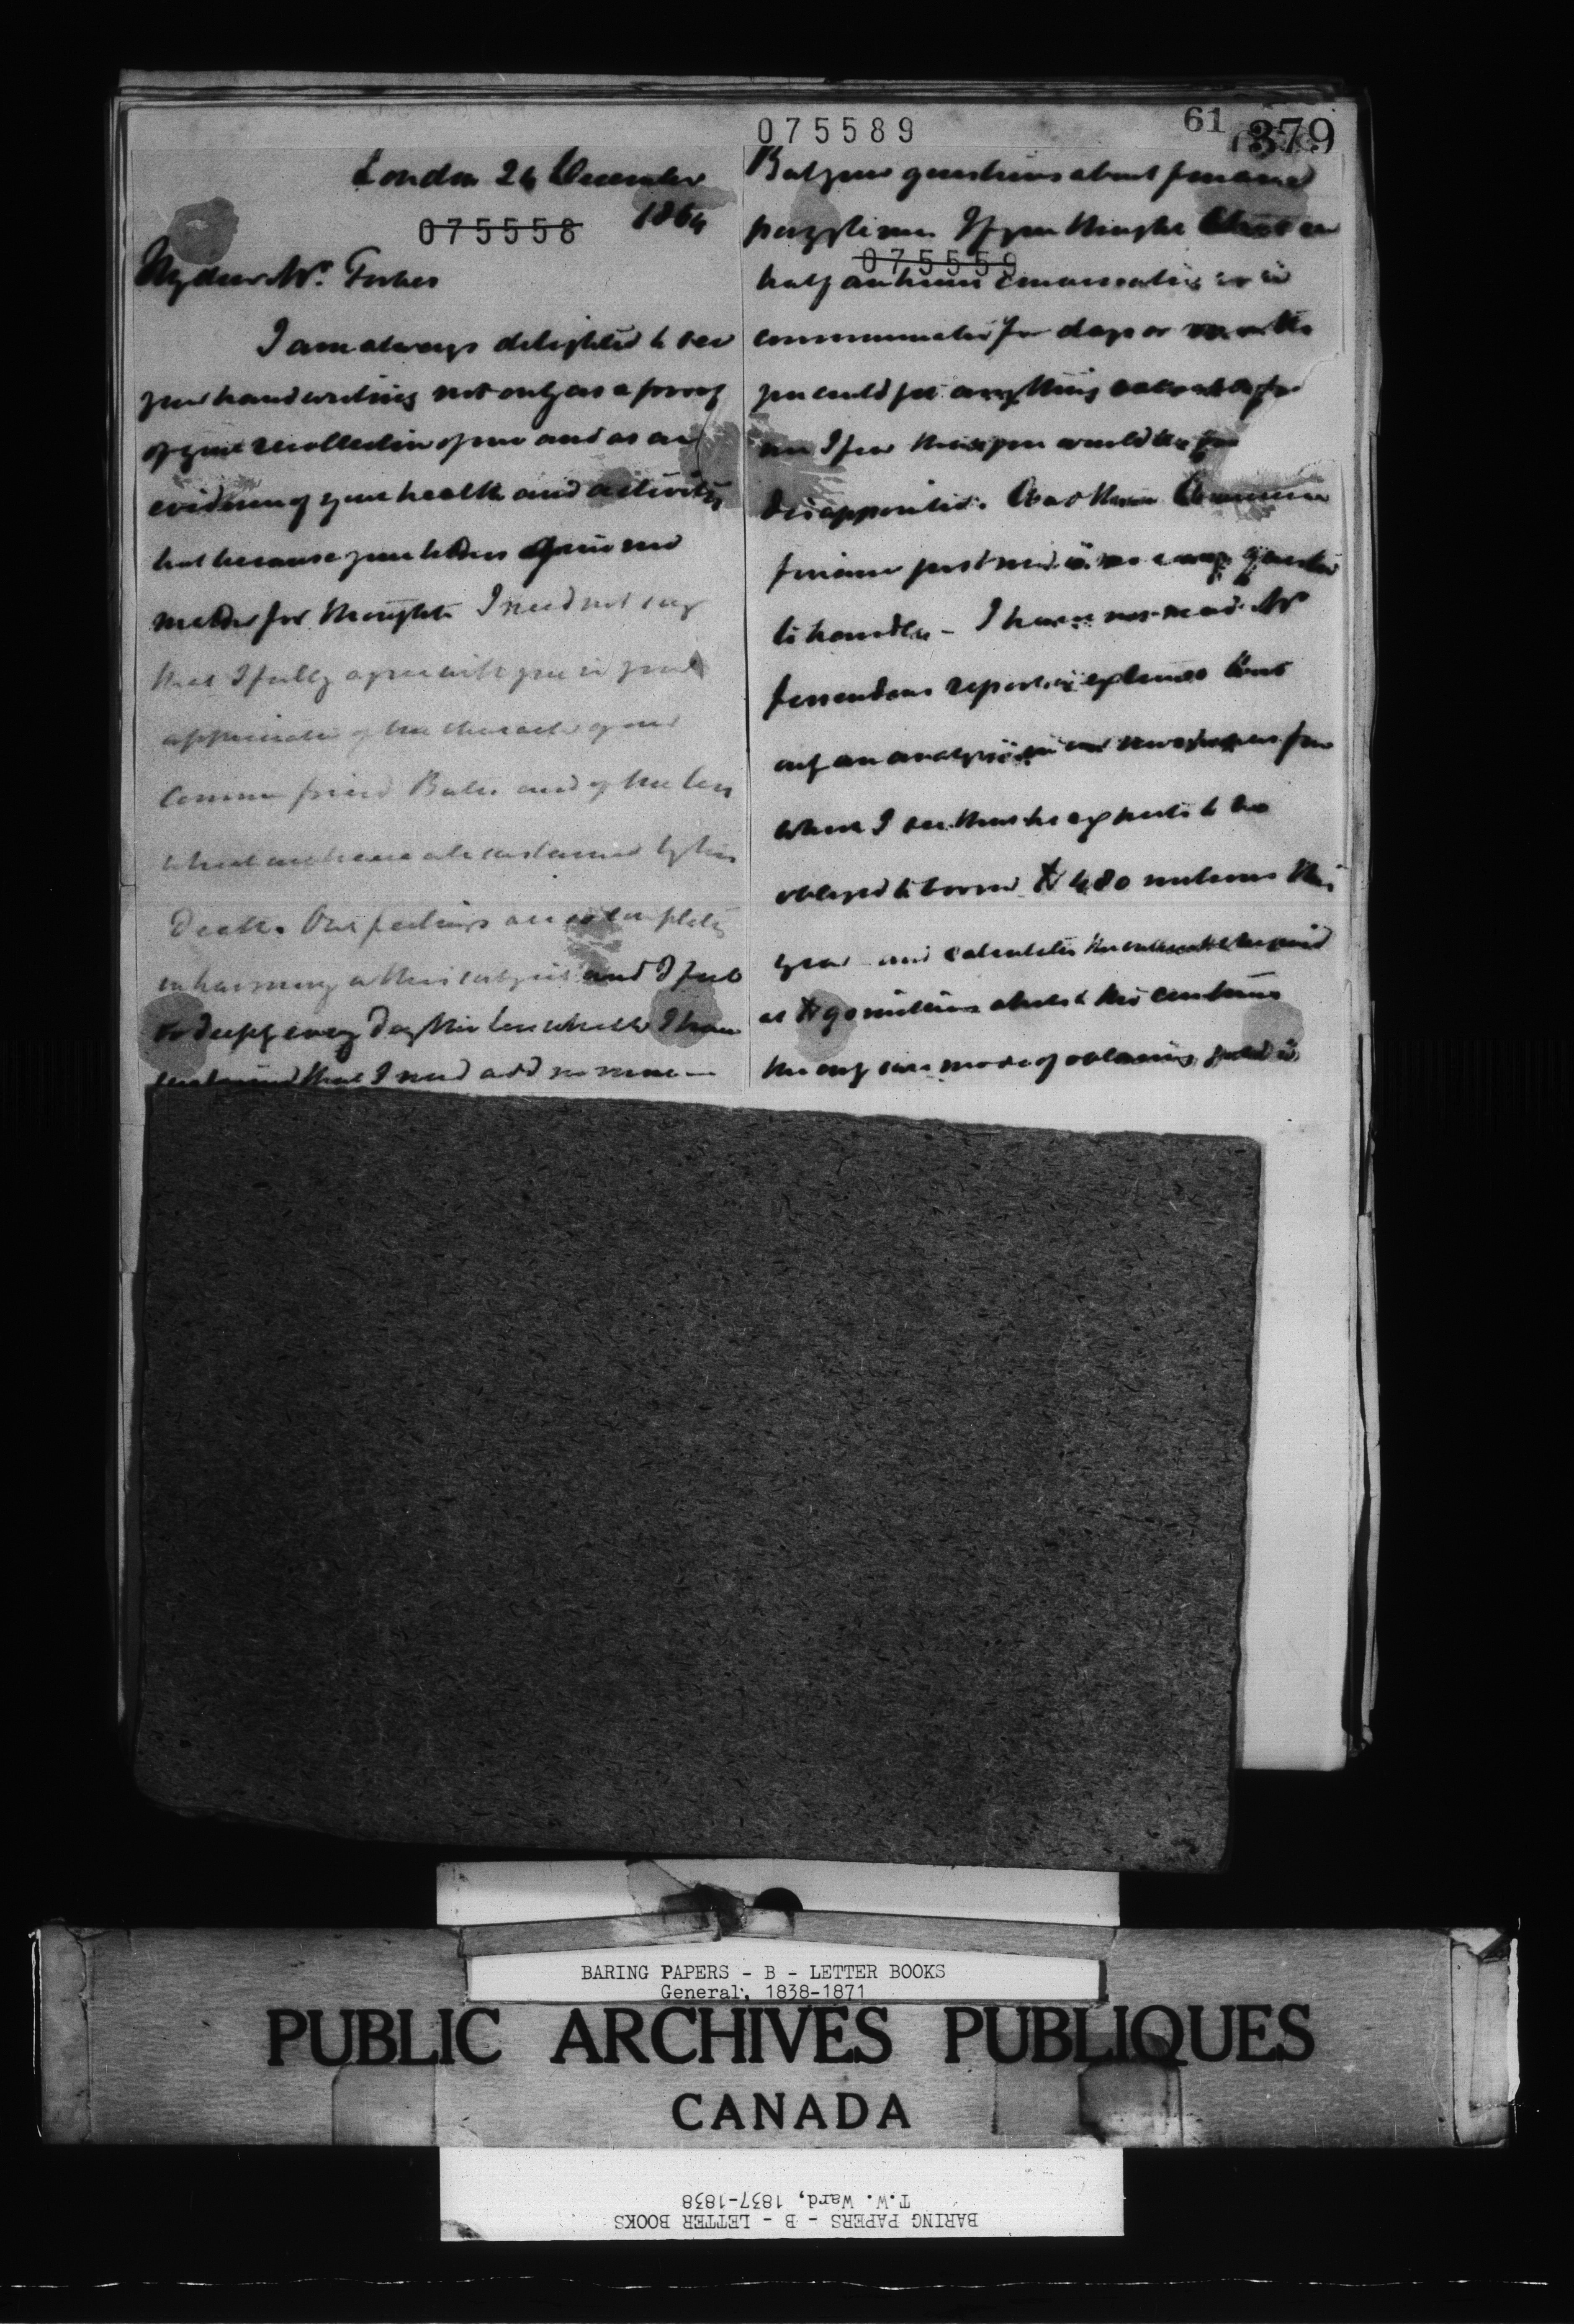 075589
61
379
London 24 December
1864
075558
My dear Mr. Forbes
I am always delighted to see
your handwriting not only as a proof
of your recollection of me and as an
evidence of your health and activity
but because your letters give me
matter for thought. I need not say
that I fully agree with you in your
appreciation of the character of our
common friend Bates and of the loss
which we have all sustained by his
death. Our feelings are completely
in harmony on this subject and I feel
so deeply every day the loss which I have
sustained that I need add no more
But your questions about finance
puzzle me. If you thought that in
075559
half an hours conversation or in
communication for days or months
you could get anything valuable from
me I fear that you would be
disappointed. American
finance just now is no easy question
to handle - I have not read Mr
Fessendens report except
only an analysis in our newspapers from
which I see that he expects to be
obliged to borrow $480 millions this
year and calculates the
at $90 millions
the only sure mode of obtaining gold is
BARING PAPERS - B - LETTER BOOKS
General, 1838-1871
PUBLIC ARCHIVES PUBLIQUES
CANADA
BARING PAPERS - B - LETTER BOOKS
T.W. Ward, 1837-1838